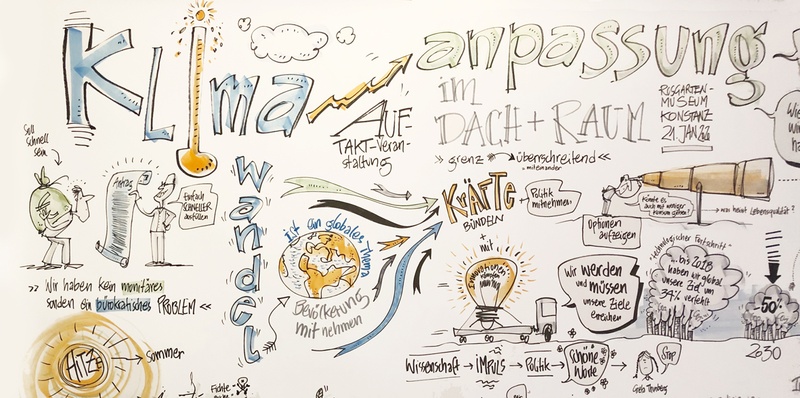 Klimaanpassung
im
DACH+RAUM
ROSGARTEN-
MUSEUM
KONSTANZ
21.JAN.22
AUF-
TAKT-Veran-
staltung
>> grenz >> überschreitend <<
miteinander
Soll
schnell
sein
Antrag
Einfach
SCHNELLER
ausfüllen
>> Wir haben kein monitäres
sondern ein bürokratisches PROBLEM <<
HITZE
Sommer
Fichte
wandel
Ist ein globales Thema
Bevölkerung
mitnehmen
KRÄFTE
BÜNDELN
+ Politik
mitnehmen
+ mit
Innovationen
Optionen
aufzeigen
Könnte es
auch mit weniger
Konsum gehen?
was heisst Lebensqualität?
Wir werden
und müssen
unsere Ziele
erreichen
"technologischer Fortschritt"
... bis 2018
haben wir global
unsere Ziel um
34% verfehlt
-50%
2030
Wissenschaft → IMPULS → Politik → Schöne
Worte
Stop
Greta Thunberg